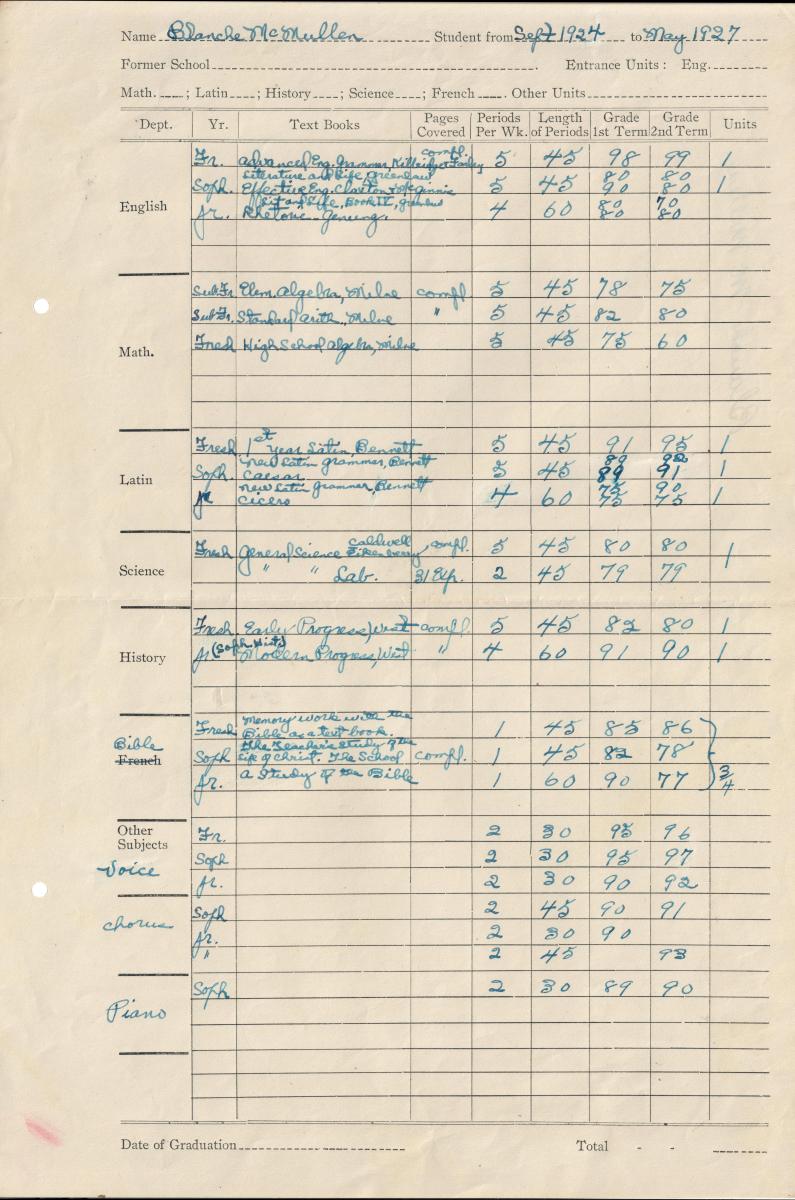 Name Blanche McMullen Student from Sept 1924 to May 1927
Former School Entrance Units: Eng.
Math. ; Latin ; History ; Science ; French . Other Units
Dept. Yr. Text Books Pages Covered Periods Per Wk. Length of Periods Grade 1st Term Grade 2nd Term Units
English
Fr. Advanced Eng. Grammar, Kittredge & Farley compl. 5 45 98 99 1
Literature and Life, Greenlaw 80 80
Soph. Effective Eng. Claxton & McGinnis 5 45 90 80 1
Lit and Life, Book IV, Greenlaw 80 70
Jr. Rhetoric - Genung. 4 60 80 80
Math.
Sub Fr. Elem. Algebra, Milne compl 5 45 78 75
Sub Fr. Standard Arith., Milne " 5 45 82 80
Fresh High School Algebra, Milne 5 45 75 60
Latin
Fresh 1st Year Latin, Bennett 5 45 91 95 1
New Latin Grammar, Bennett 89 92
Soph. Caesar 5 45 89 91 1
New Latin Grammar, Bennett 75 90
Jr Cicero 4 60 75 75 1
Science
Fresh General Science Caldwell Eikenberry compl. 5 45 80 80 1
" " Lab. 31 Exp. 2 45 79 79
History
Fresh. Early Progress, West compl. 5 45 82 80 1
Jr (Soph. Hist.) Modern Progress, West " 4 60 91 90 1
Bible
French
Fresh Memory work with the Bible as a text book. 1 45 85 86
Soph The Teacher's Study of the Life of Christ. The School compl. 1 45 82 78
Jr. A Study of the Bible 1 60 90 77 3/4
Other Subjects
Voice
Fr. 2 30 95 96
Soph 2 30 95 97
Jr. 2 30 90 92
Chorus
Soph 2 45 90 91
Jr. 2 30 90
" 2 45 93
Piano
Soph 2 30 89 90
Date of Graduation Total - -